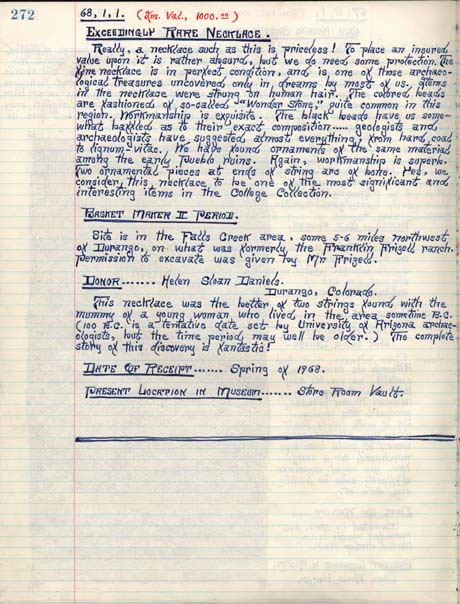 272
68, 1, 1. (Ins. Val., 1000.00)
Exceedingly Rare Necklace.
Really, a necklace such as this is priceless! To place an insured
value upon it is rather absurd, but we do need some protection. The
fine necklace is in perfect condition, and is one of those archaeo-
logical treasures uncovered only in dreams by most of us. Items
in the necklace were strung on human hair. The colored beads
are fashioned of so-called "Wonder Stone," quite common in this
region. Workmanship is exquisite. The black beads have us some-
what baffled as to their exact composition---- geologists and
archaeologists have suggested almost everything, from hard coal
to lignum-vitae. We have found ornaments of the same material
among the early Pueblo ruins. Again, workmanship is superb.
Two ornamental pieces at ends of string are of bone. Yes, we
consider this necklace to be one of the most significant and
interesting items in the College Collection.
Basket Maker II Period.
Site is in the Falls Creek area, some 5-6 miles northwest
of Durango, on what was formerly the Franklin Frized ranch.
Permission to excavate was given by Mr. Frized.
Donor....... Helen Sloan Daniels.
Durango, Colorado.
This necklace was the better of two strings found with the
mummy of a young woman who lived in the area sometime B.C.
(100 B.C. is a tentative date set by University of Arizona archae-
ologists, but the time period may well be older.) The complete
story of this discovery is fantastic!
Date Of Receipt....... Spring of 1968.
Present Location in Museum....... Store Room Vault.